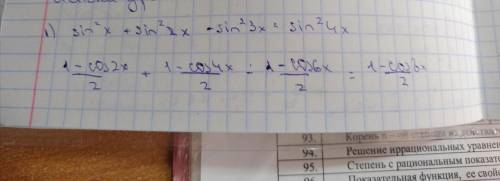 1) sin²x + sin²2x - sin²3x = sin²4x
1-cos2x/2 + 1-cos4x/2 - 1-cos6x/2 = 1-cos8x/2
93. Корень
94. Решение иррациональных уравнен
95. Степень с рациональным показате
96. Показательная функция, ее свой